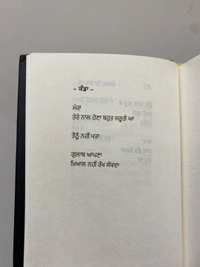 – ਕੰਡਾ –
ਮੇਰਾ
ਤੇਰੇ ਨਾਲ ਹੋਣਾ ਬਹੁਤ ਜ਼ਰੂਰੀ ਆ
ਤੈਨੂੰ ਨਹੀਂ ਪਤਾ
ਗੁਲਾਬ ਆਪਣਾ
ਖ਼ਿਆਲ ਨਹੀਂ ਰੱਖ ਸੱਕਦਾ